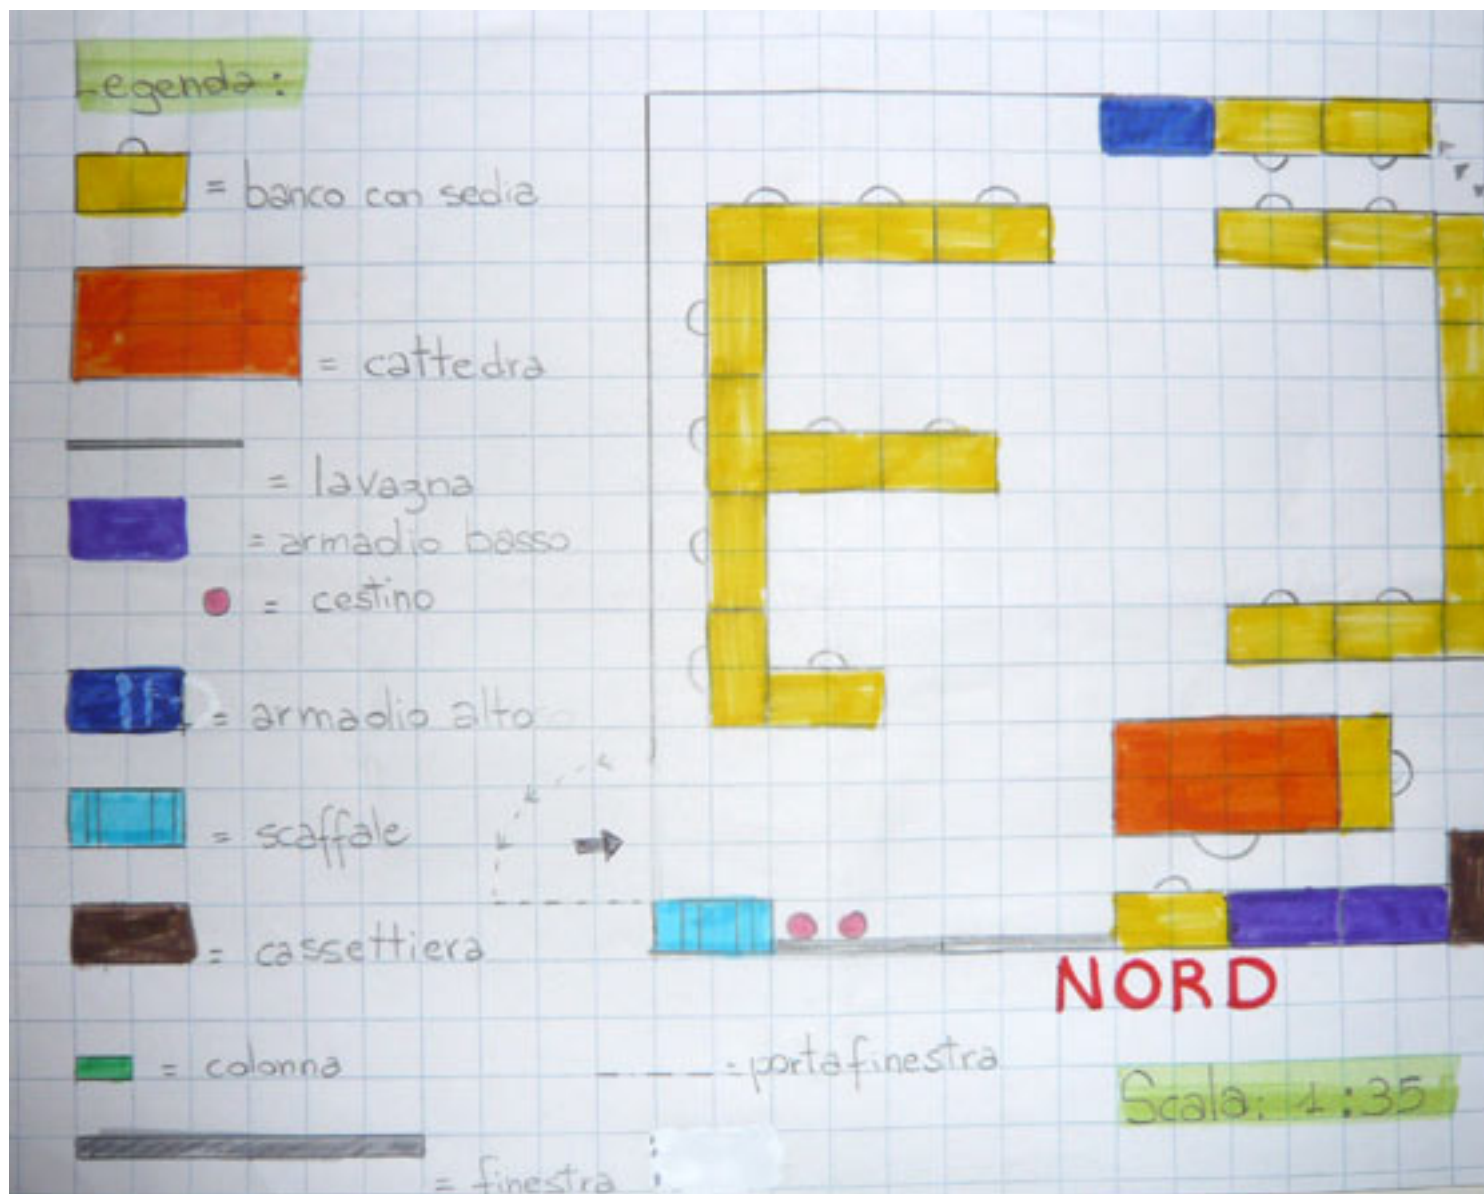 Legenda:
= banco con sedia
= cattedra
= lavagna
= armadio basso
= cestino
= armadio alto
= scaffale
= cassettiera
NORD
= colonna
= portafinestra
Scala: 1:35
= finestra